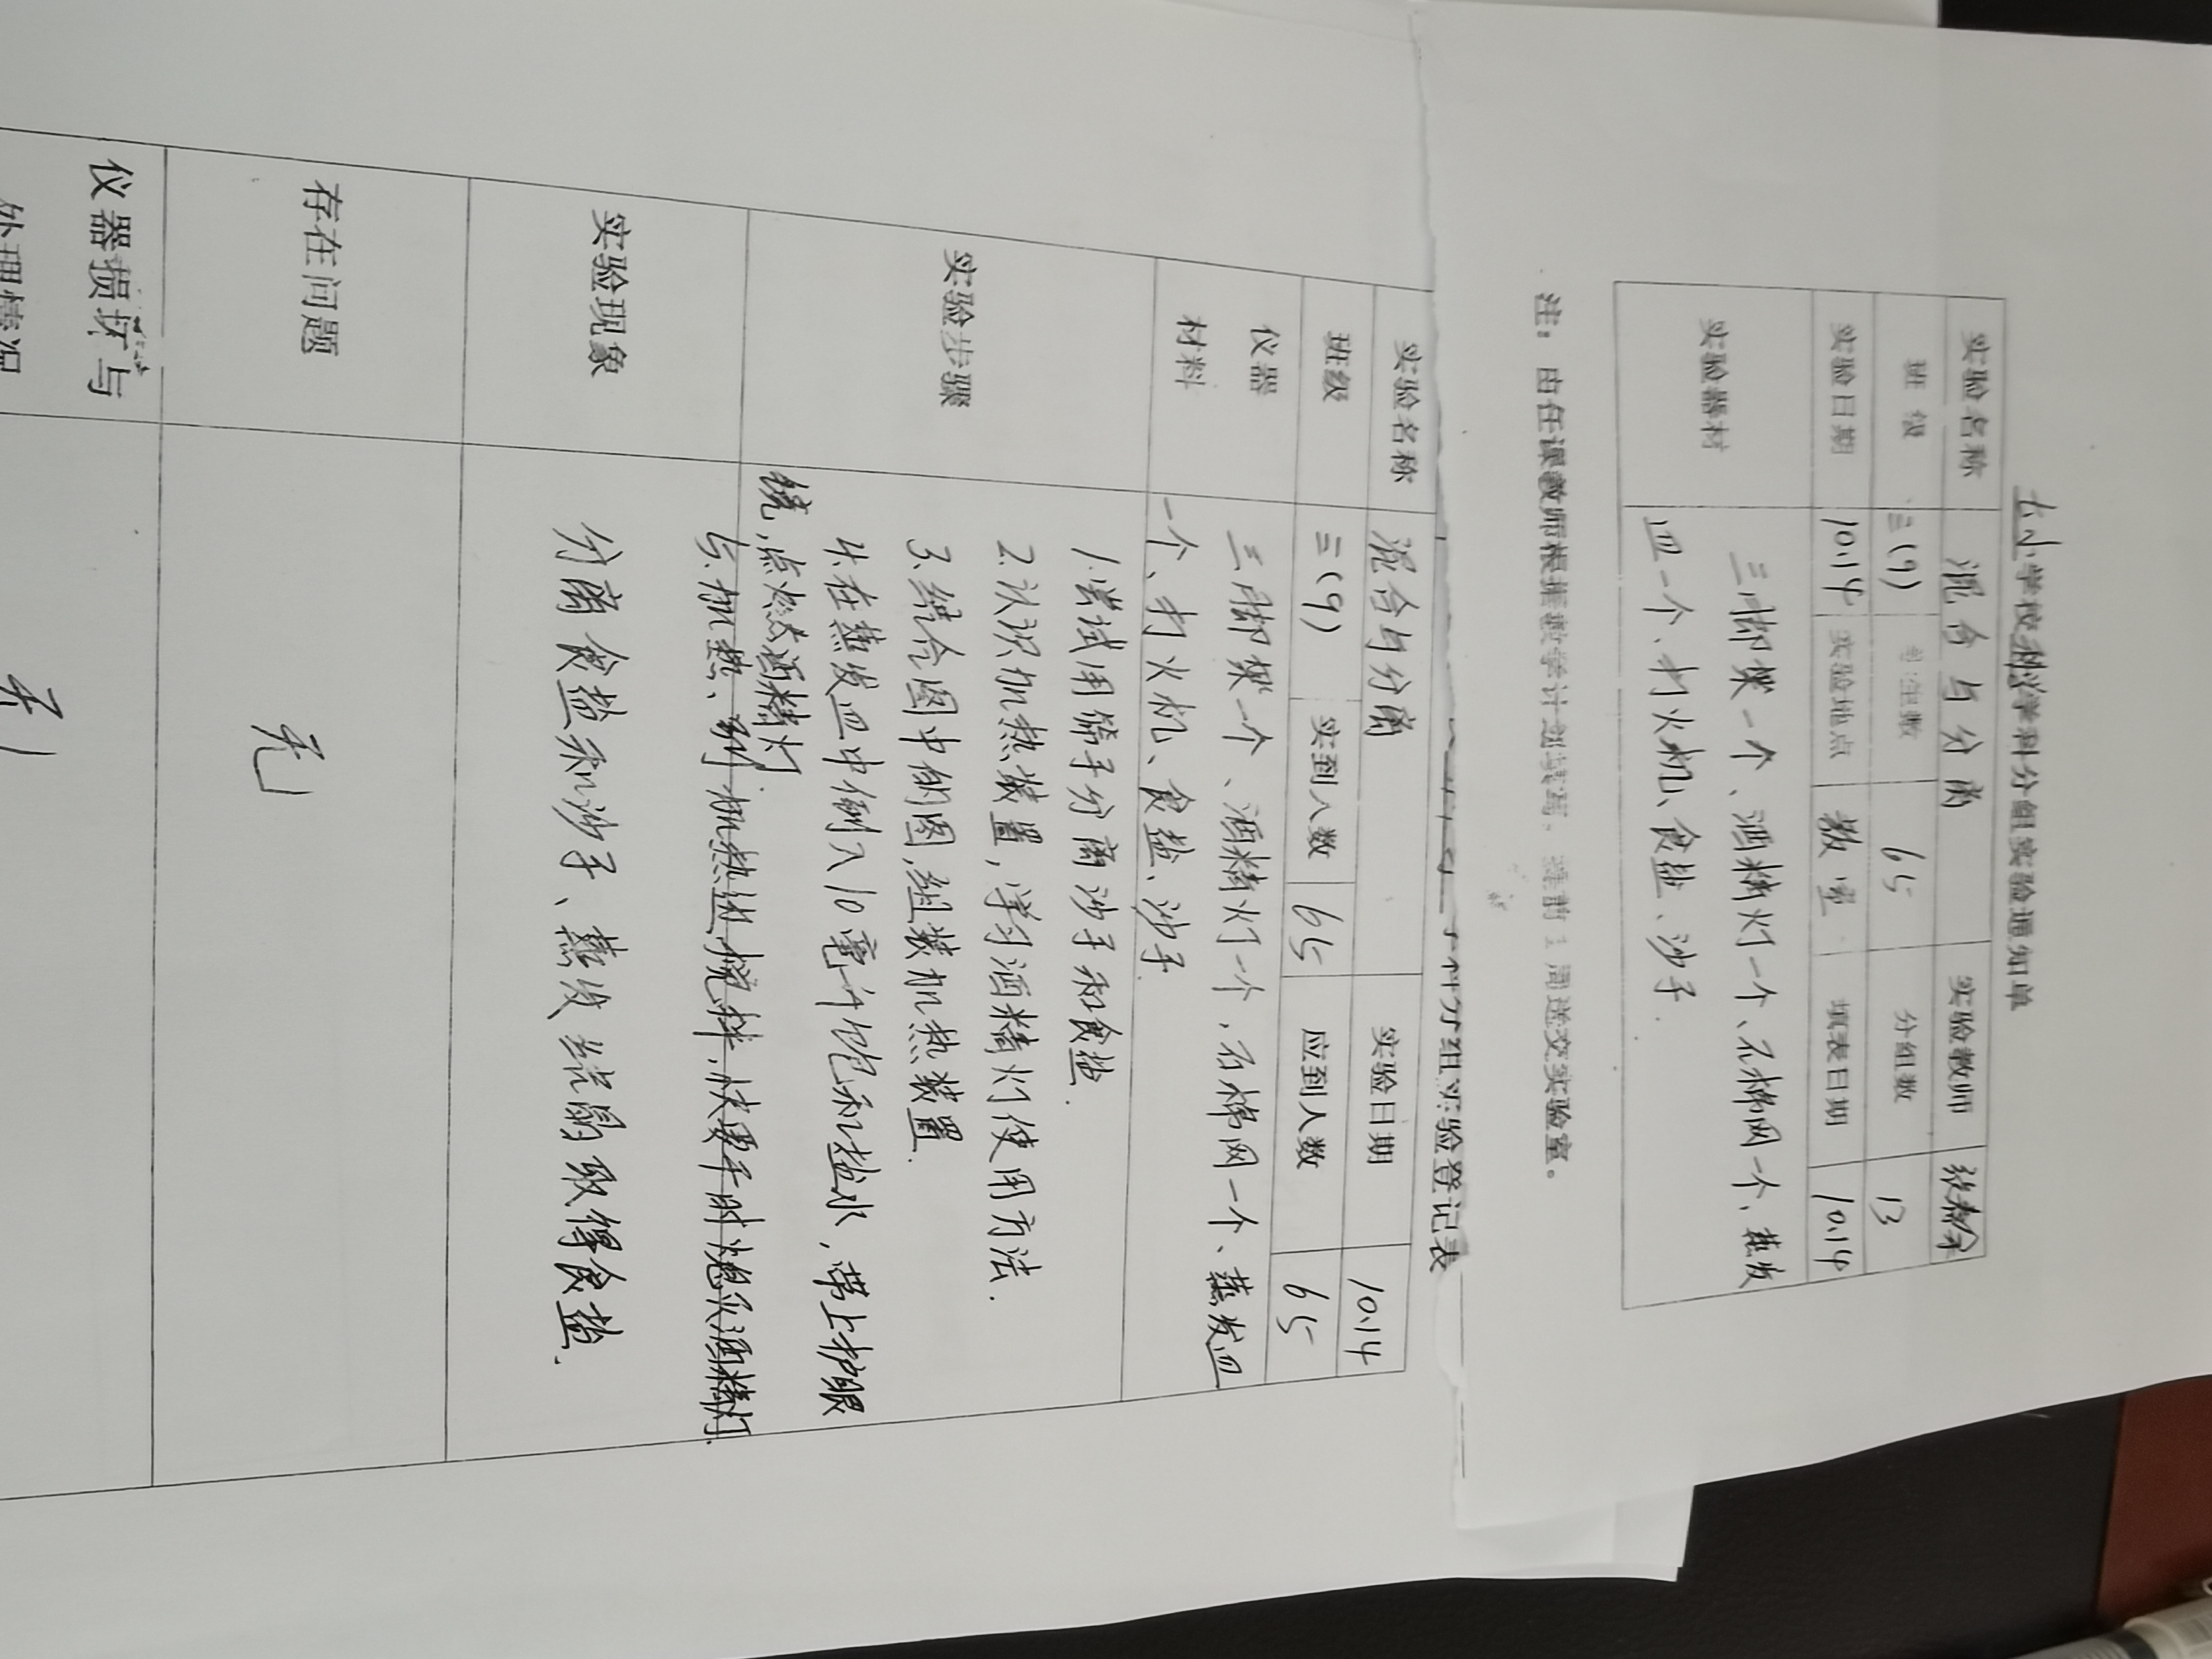 七小学校科学学科分组实验通知单
实验名称 混合与分离 实验教师
班级 三(9) 学生数 65 分组数 13
实验日期 10.14 实验地点 教室 填表日期 10.14
实验器材 三脚架一个、酒精灯一个、石棉网一个、蒸发
皿一个、打火机、食盐、沙子.
注：由任课教师根据教学计划填写，课前1周送交实验室。
科分组实验登记表
实验名称 混合与分离 实验日期 10.14
班级 三(9) 实到人数 65 应到人数 65
仪器 三脚架一个、酒精灯一个，石棉网一个、蒸发皿
材料 一个、打火机、食盐、沙子.
实验步骤
1.尝试用筛子分离沙子和食盐.
2.认识加热装置，学习酒精灯使用方法.
3.结合图中的图,组装加热装置.
4.在蒸发皿中倒入10毫升饱和盐水，带上护眼
镜，点燃酒精灯.
5.加热、边加热边搅拌,快要干时熄灭酒精灯.
实验现象
分离食盐和沙子、蒸发结晶取得食盐.
存在问题 无
仪器损坏与
处理情况